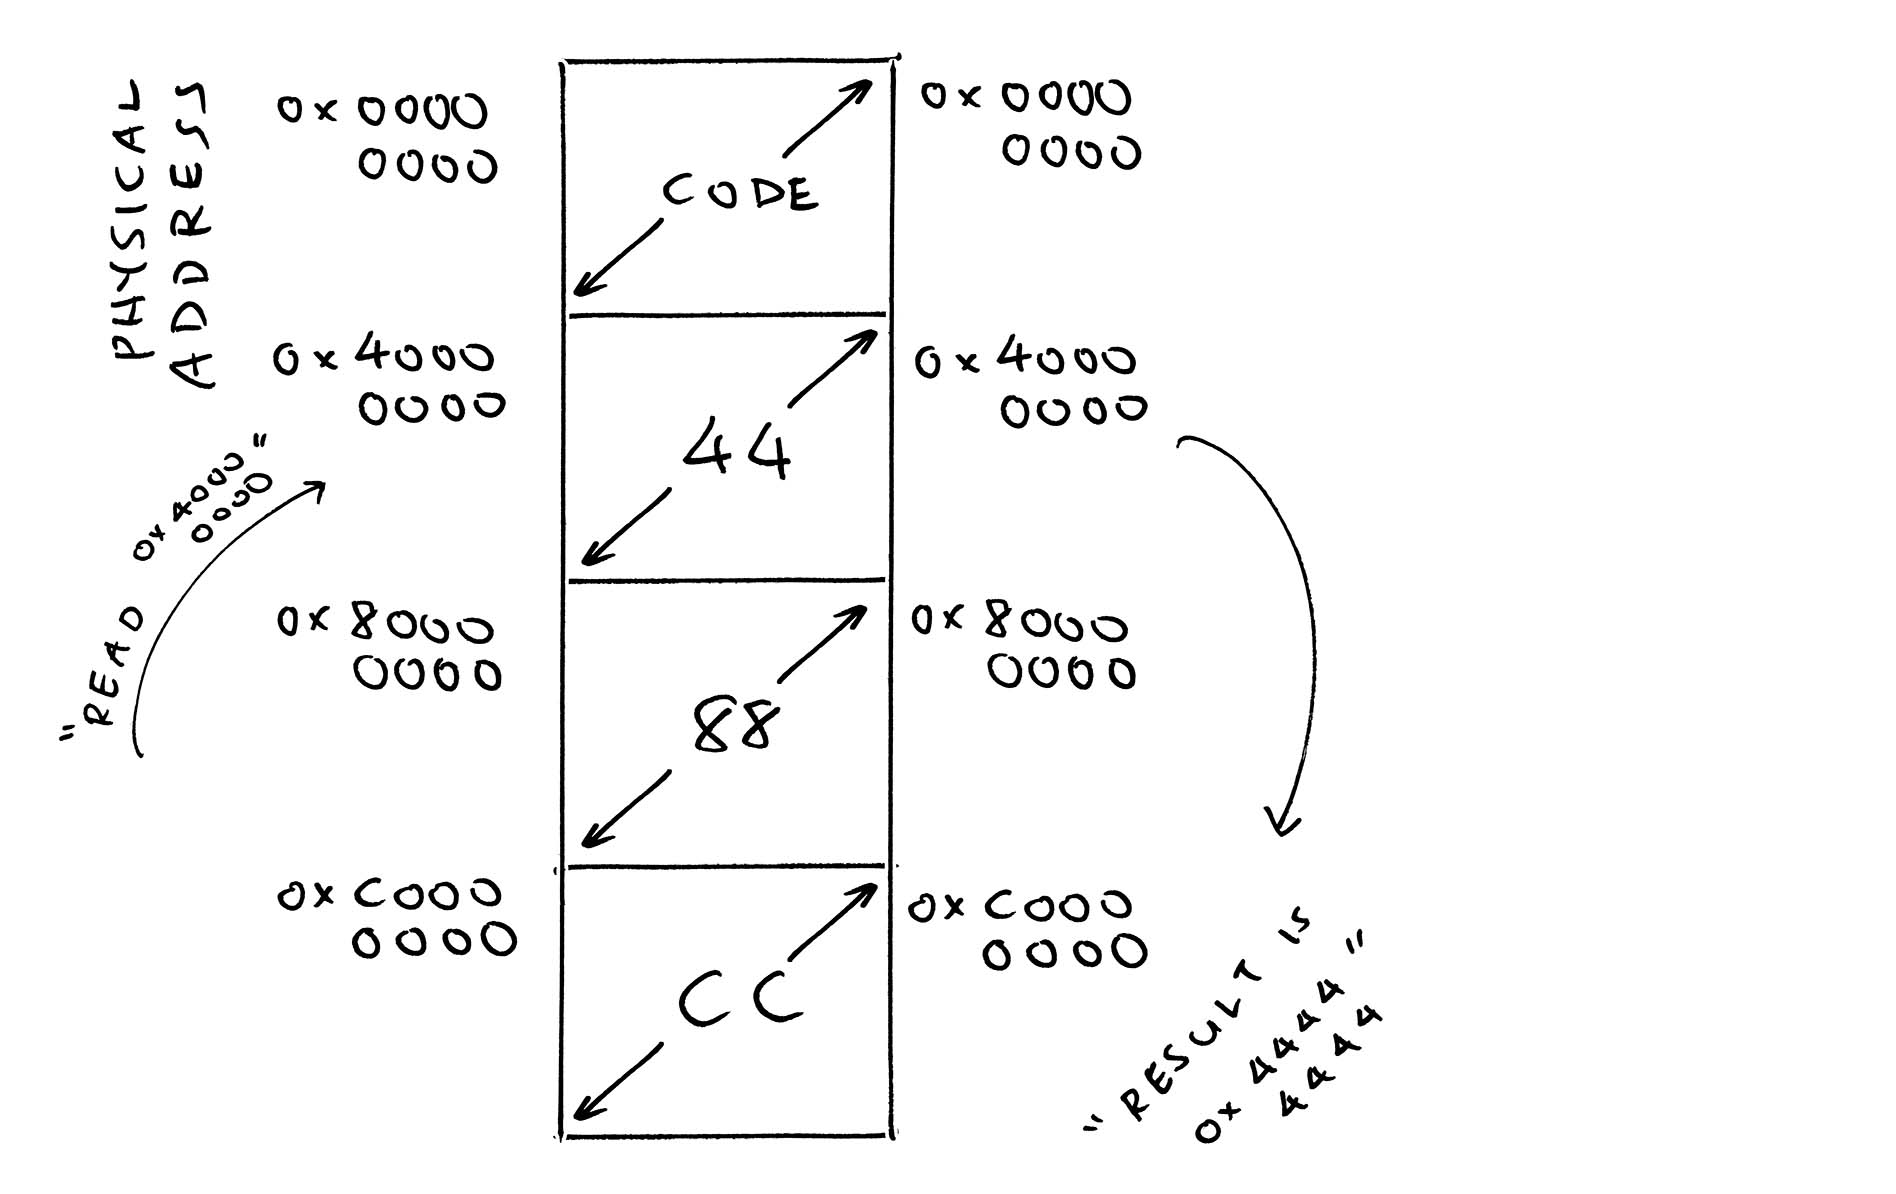 PHYSICAL
ADDRESS
0x0000
0000
CODE
0x0000
0000
0x4000
0000
44
0x4000
0000
"READ 0x4000"
0000
0x8000
0000
88
0x8000
0000
0xC000
0000
CC
0xC000
0000
"RESULT IS
0x4444"
4444